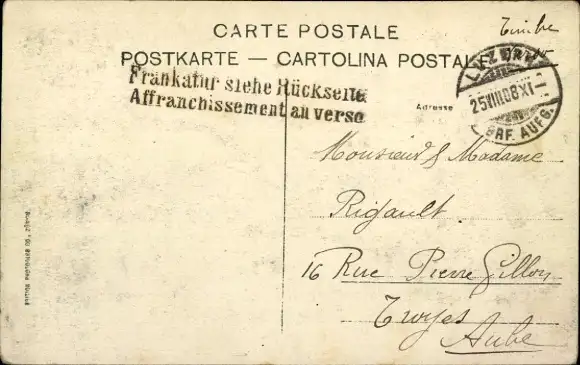 CARTE POSTALE
POSTKARTE — CARTOLINA POSTALE
Timbre
Frankatur siehe Rückseite
Affranchissement au verso
Adresse
LUZERN
25.VIII.08.XI
BRF. AUFG.
Monsieur & Madame
Rigault
16 Rue Pierre Gillon
Troyes
Aube